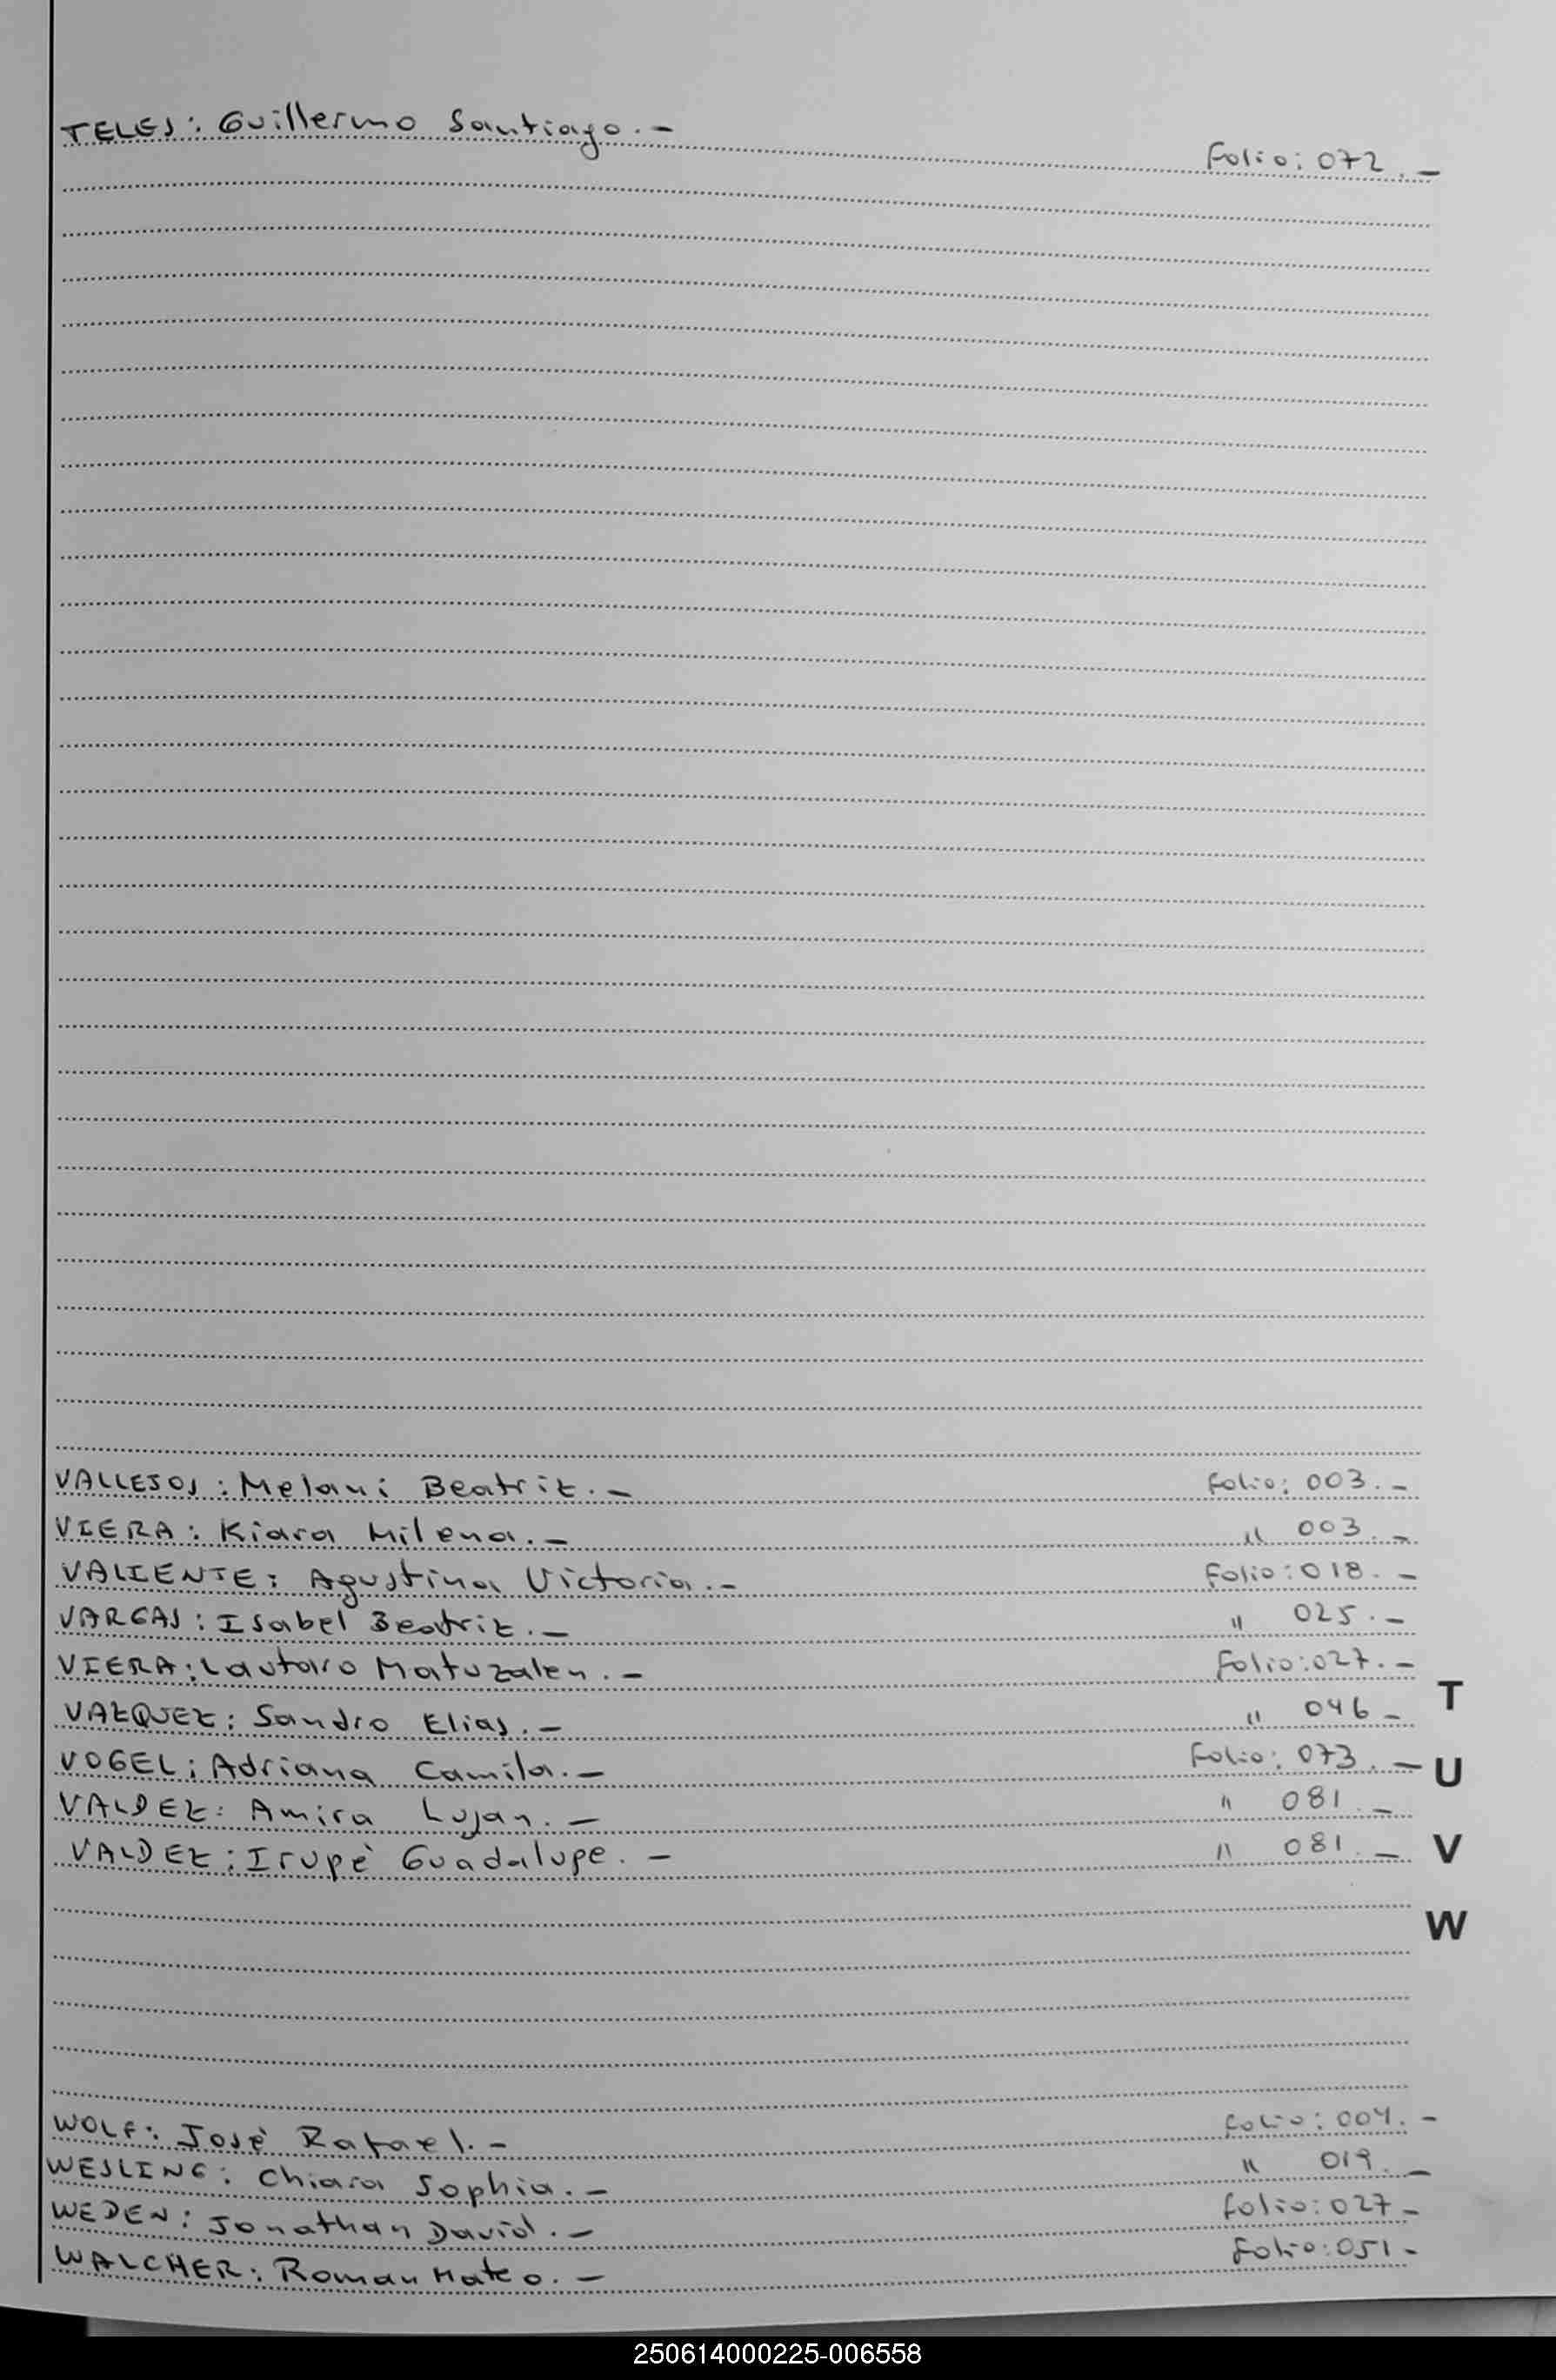 TELES: Guillermo Santiago.- Folio: 072.-
VALLEJOS: Melani Beatriz.- Folio: 003.-
VIERA: Kiara Milena.- " 003.-
VALIENTE: Agustina Victoria.- Folio: 018.-
VARGAS: Isabel Beatriz.- " 025.-
VIERA: Lautaro Matuzalen.- Folio: 027.-
VAZQUEZ: Sandro Elias.- " 046-
VOGEL: Adriana Camila.- Folio: 073.-
VALDEZ: Amira Lujan.- " 081.-
VALDEZ: Irupè Guadalupe.- " 081.-
T
U
V
W
WOLF: Josè Rafael.- Folio: 004.-
WESLING: Chiara Sophia.- " 019.-
WEDEN: Jonathan David.- Folio: 027-
WALCHER: Roman Mateo.- Folio: 051-
250614000225-006558